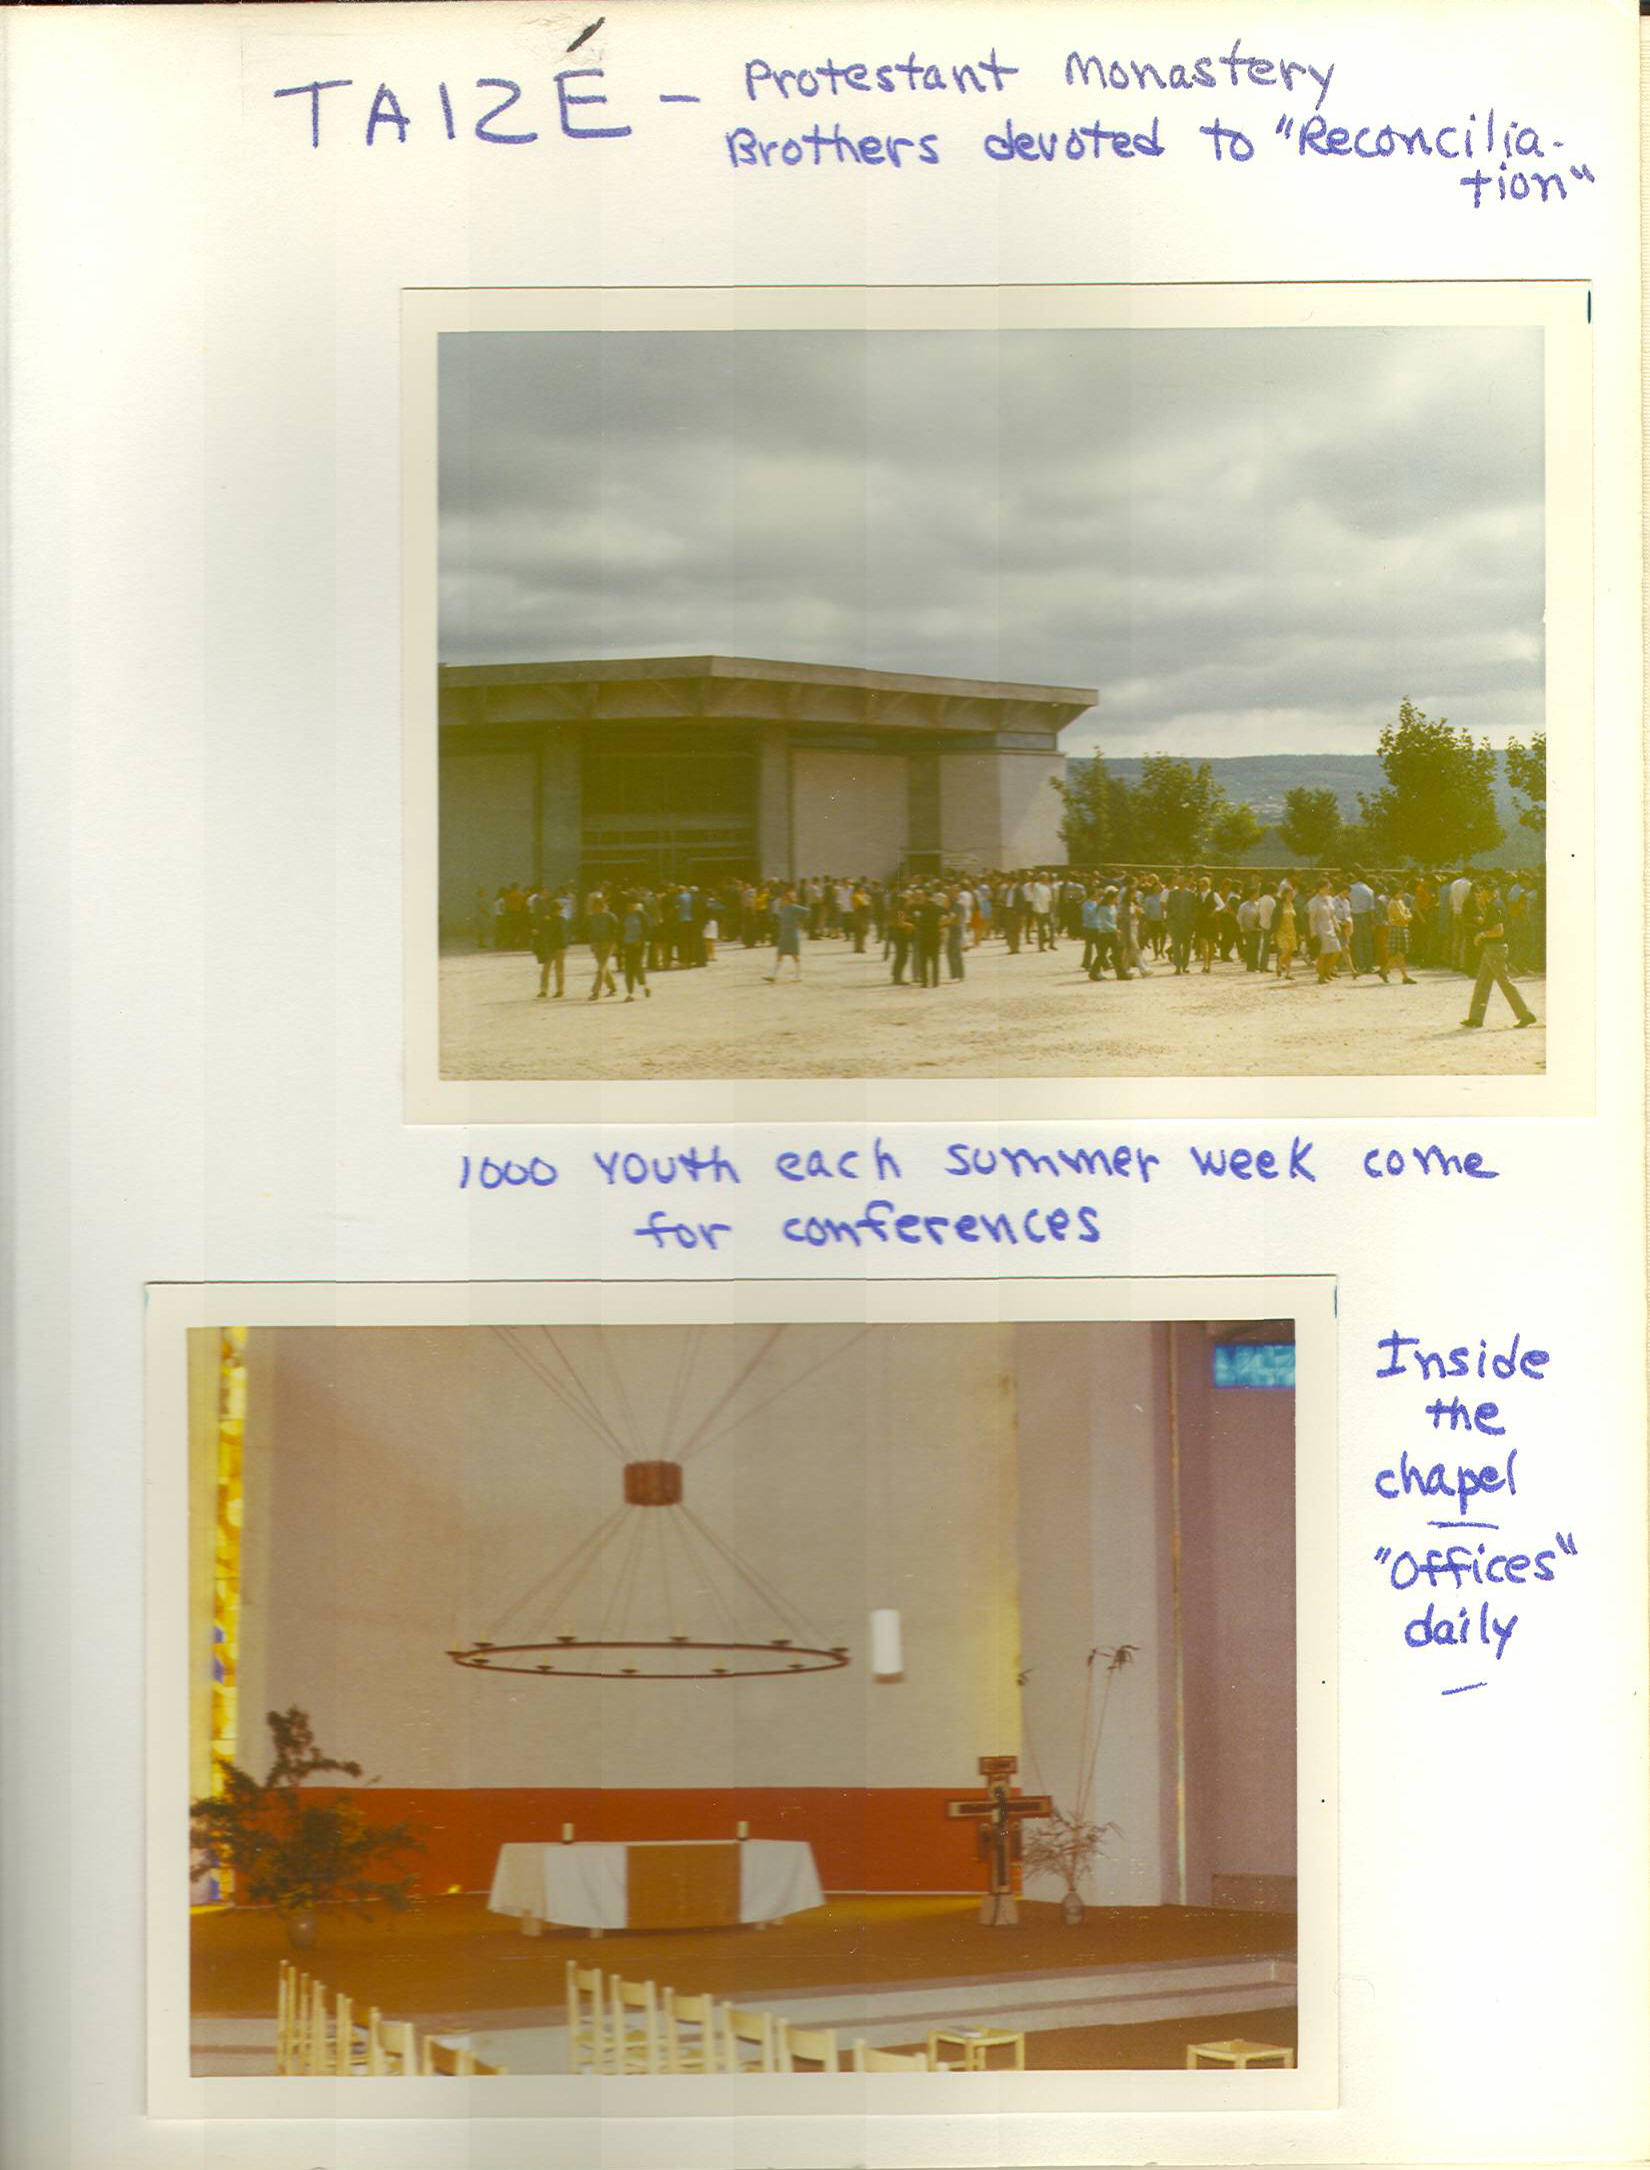 TAIZÉ - Protestant Monastery
Brothers devoted to "Reconcilia-
tion"
1000 Youth each summer week come
for conferences
Inside
the
chapel
—
"Offices"
daily
—